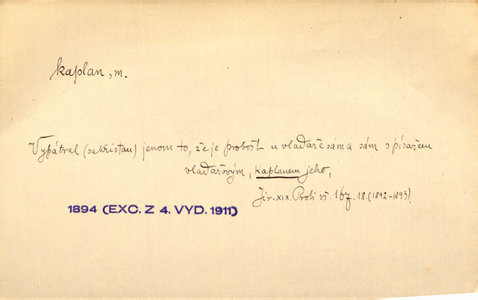 kaplan, m.
Vypátral (sakristan) jenom to, že je probošt u vladaře sama sám s písařem
vladařovým, kaplanem jeho,
Jir. XIX. Proti vš. 167. 18. (1892-1893).
1894 (EXC. Z 4. VYD. 1911)